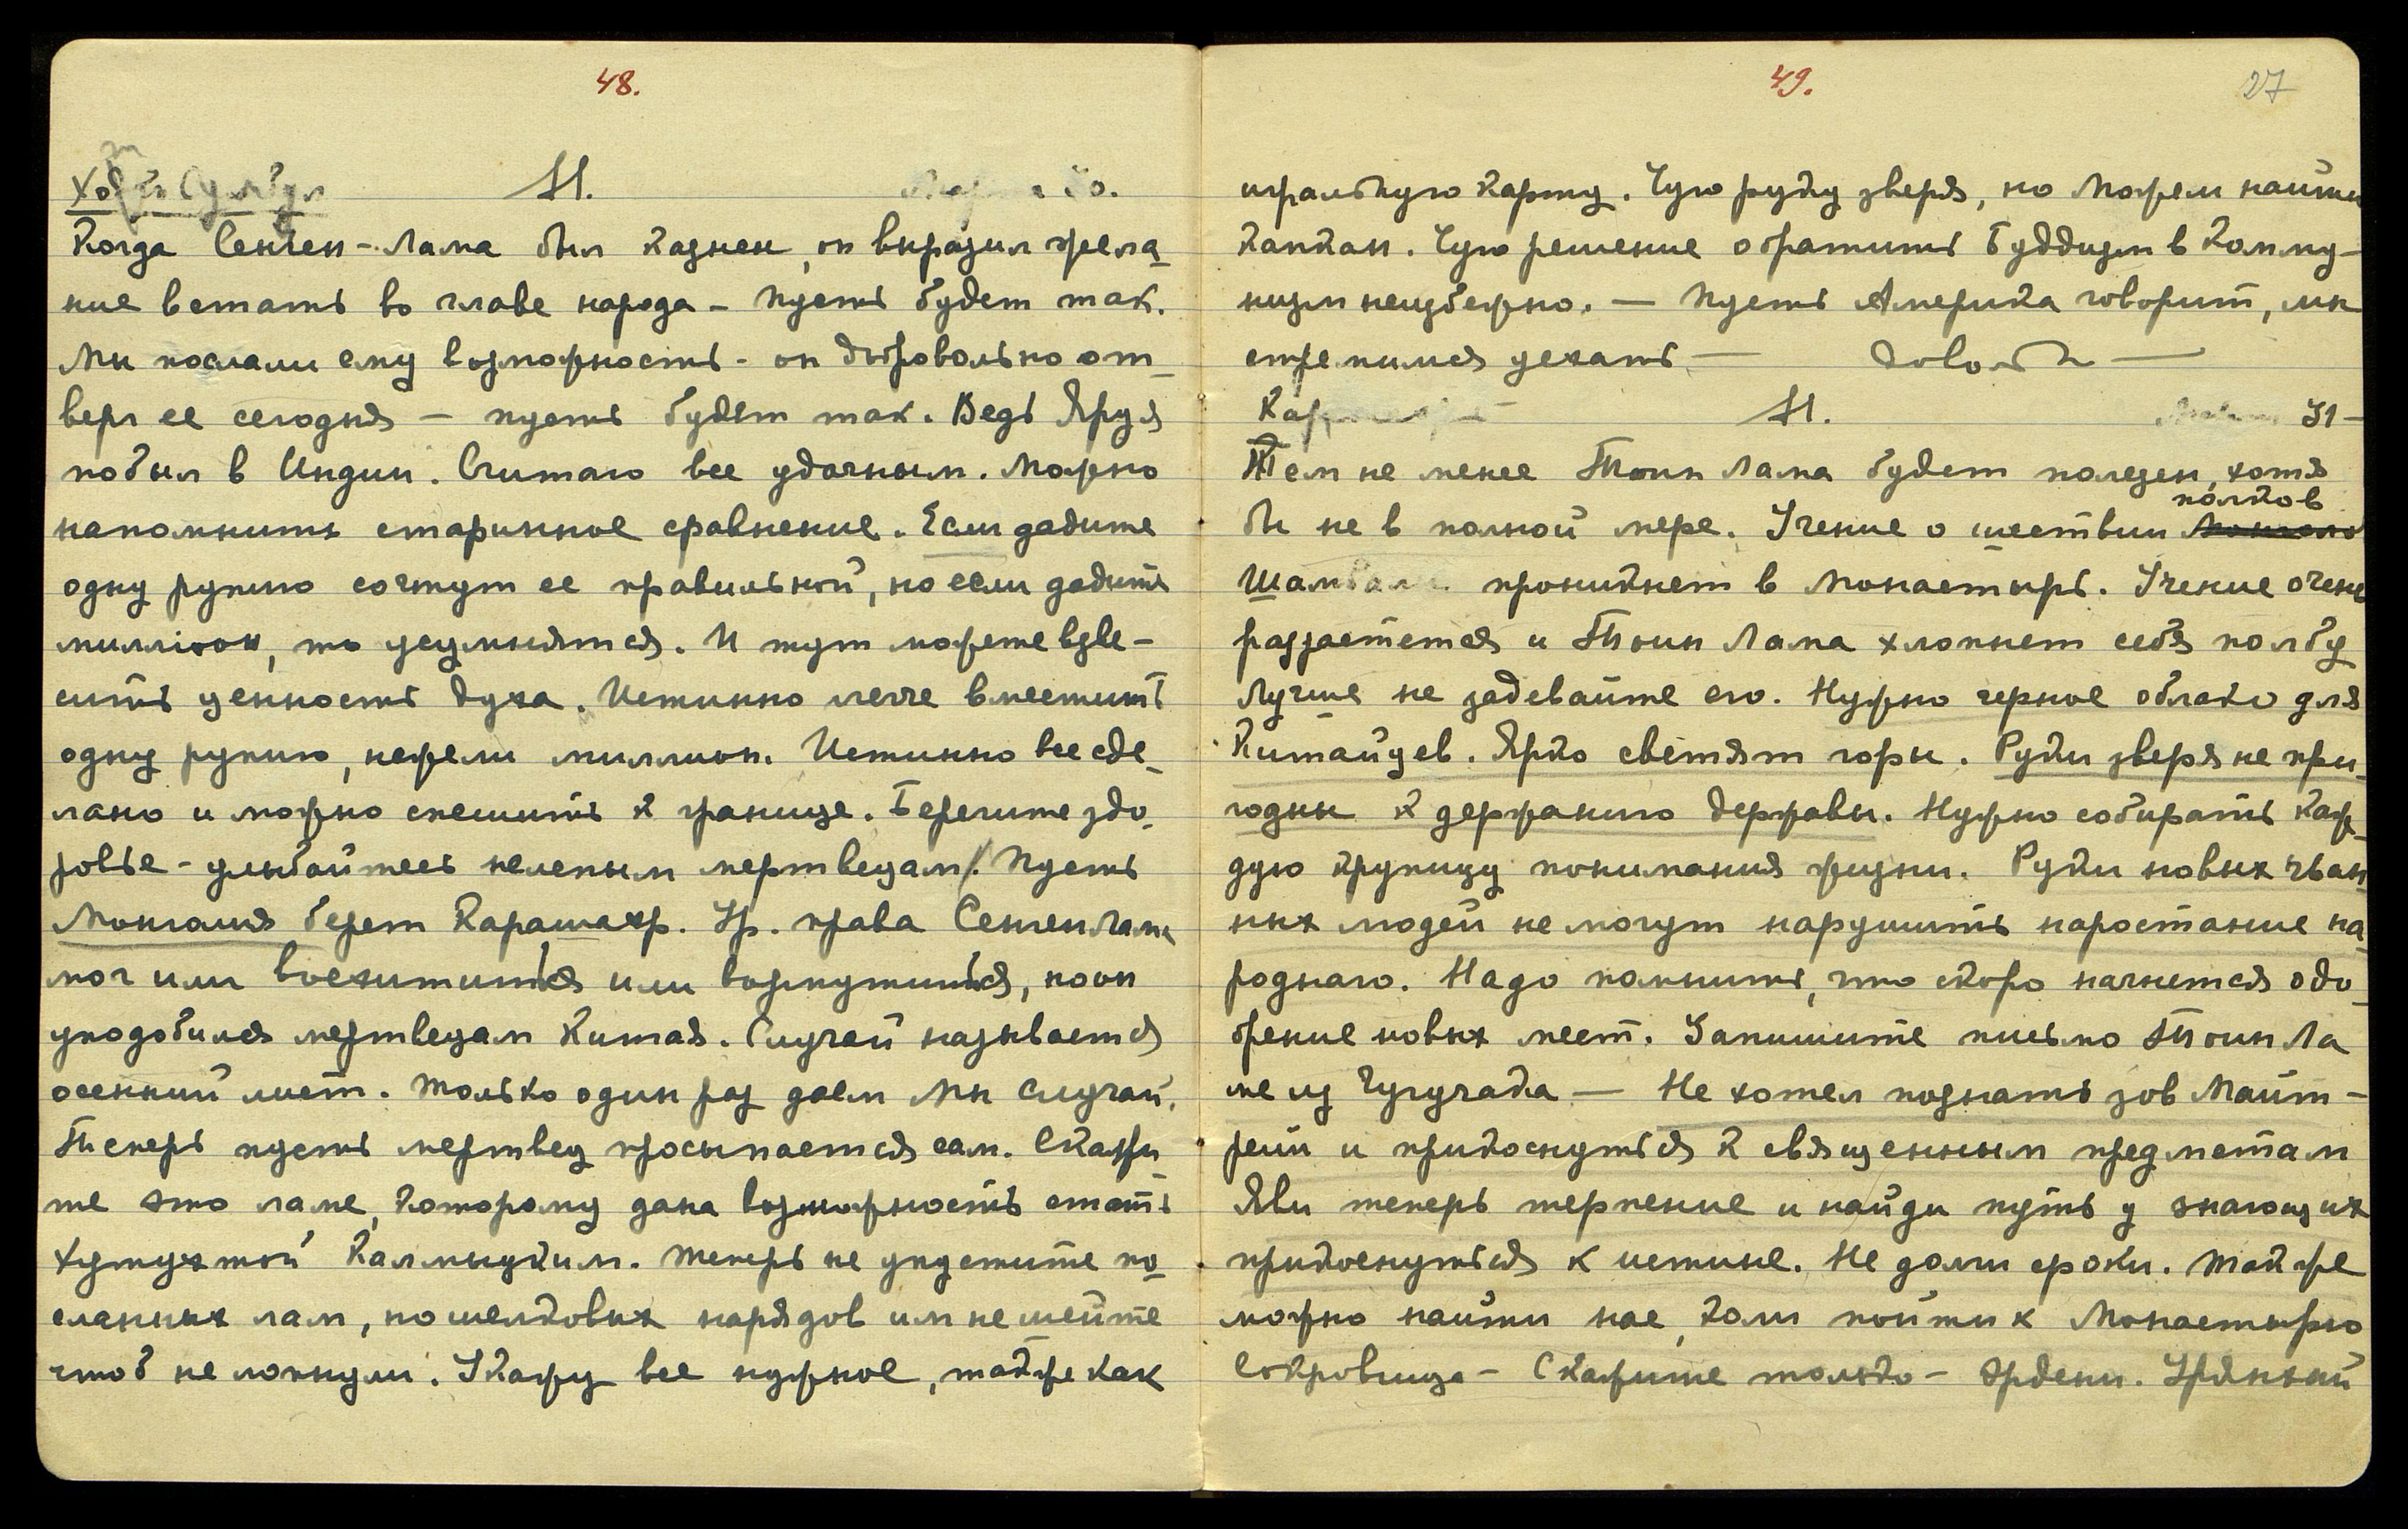 48.
М.
Когда Сенген-Лама был казнен, он выразил жела-
ние встать во главе народа – пусть будет так.
Мы послали ему возможность – он добровольно от-
верг ее сегодня – пусть будет так. Ведь Яруя
побыл в Индии. Считаю все удачным. Можно
напомнить старинное сравнение. Если дадите
одну рупию сочтут ее правильной, но если дадите
миллion, то усумнятся. И тут можете взве-
сить ценность духа. Истинно легче вместить
одну рупию, нежели миллион. Истинно все сде-
лано и можно спешить к границе. Берегите здо-
ровье – улыбайтесь нелепым мертвецам. Пусть
Монголия берет Карашахр. Ур. права Сенген Лама
мог или восхититься или возмутиться, но он
уподобился мертвецам Китая. Случай называется
осенний лист. Только один раз даем Мы случай.
Теперь пусть мертвец просыпается сам. Скажи-
те это ламе, которому дана возможность стать
хутухтой Калмыцким. Теперь не упустите по-
сланных лам, но шелковых нарядов им не шейте
чтоб не лопнули. Укажу все нужное, также как
49. 27
игральную карту. Чую руку зверя, но можем найти
капкан. Чую решение обратить Буддизм в Комму-
низм неизбежно. — Пусть Америка говорит, мы
стремимся уехать — довольно —
М. 31 –
Тем не менее Тоин Лама будет полезен, хотя
полков
бы не в полной мере. Учение о шествии
Шамбалы проникнет в монастырь. Учение очень
разрастется и Тоин Лама хлопнет себя по лбу
Лучше не задевайте его. Нужно черное облако для
Китайцев. Ярко светят горы. Руки зверя не при-
годны к держанию державы. Нужно собирать каж-
дую крупицу понимания жизни. Руки новых чван-
ных людей не могут нарушить наростание на-
роднаго. Надо помнить, что скоро начнется одо-
брение новых мест. Запишите письмо Тоин Ла
ме из Чугучака — Не хотел познать зов Майт-
рейи и прикоснуться к священным предметам
Яви теперь терпение и найди путь у знающих
прикоснуться к истине. Не долги сроки. Также
можно найти нас, коли пойти к Монастырю
Сокровища – Скажите только – Эрдени. Урянхай